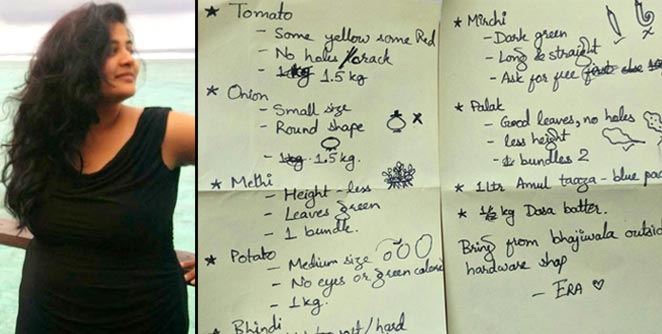 * Tomato
- Some yellow some Red
- No holes / crack
- 1.5 kg
* Onion
- Small size
- Round shape
- 1.5 kg.
* Methi
- Height - less
- Leaves green
- 1 bundle.
* Potato
- Medium size
- No eyes or green
- 1 kg.
* Bhindi
/ hard
* Mirchi
- Dark green
- Long & straight
- Ask for free
* Palak
- Good leaves, no holes
- less height
- bundles 2
* 1 Ltr Amul taaza - blue
* 1/2 kg Dosa batter.
Bring from bhajiwala
hardware shop
- ERA ♡